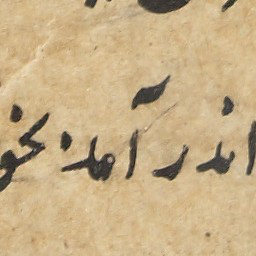 اندر آمد بخو